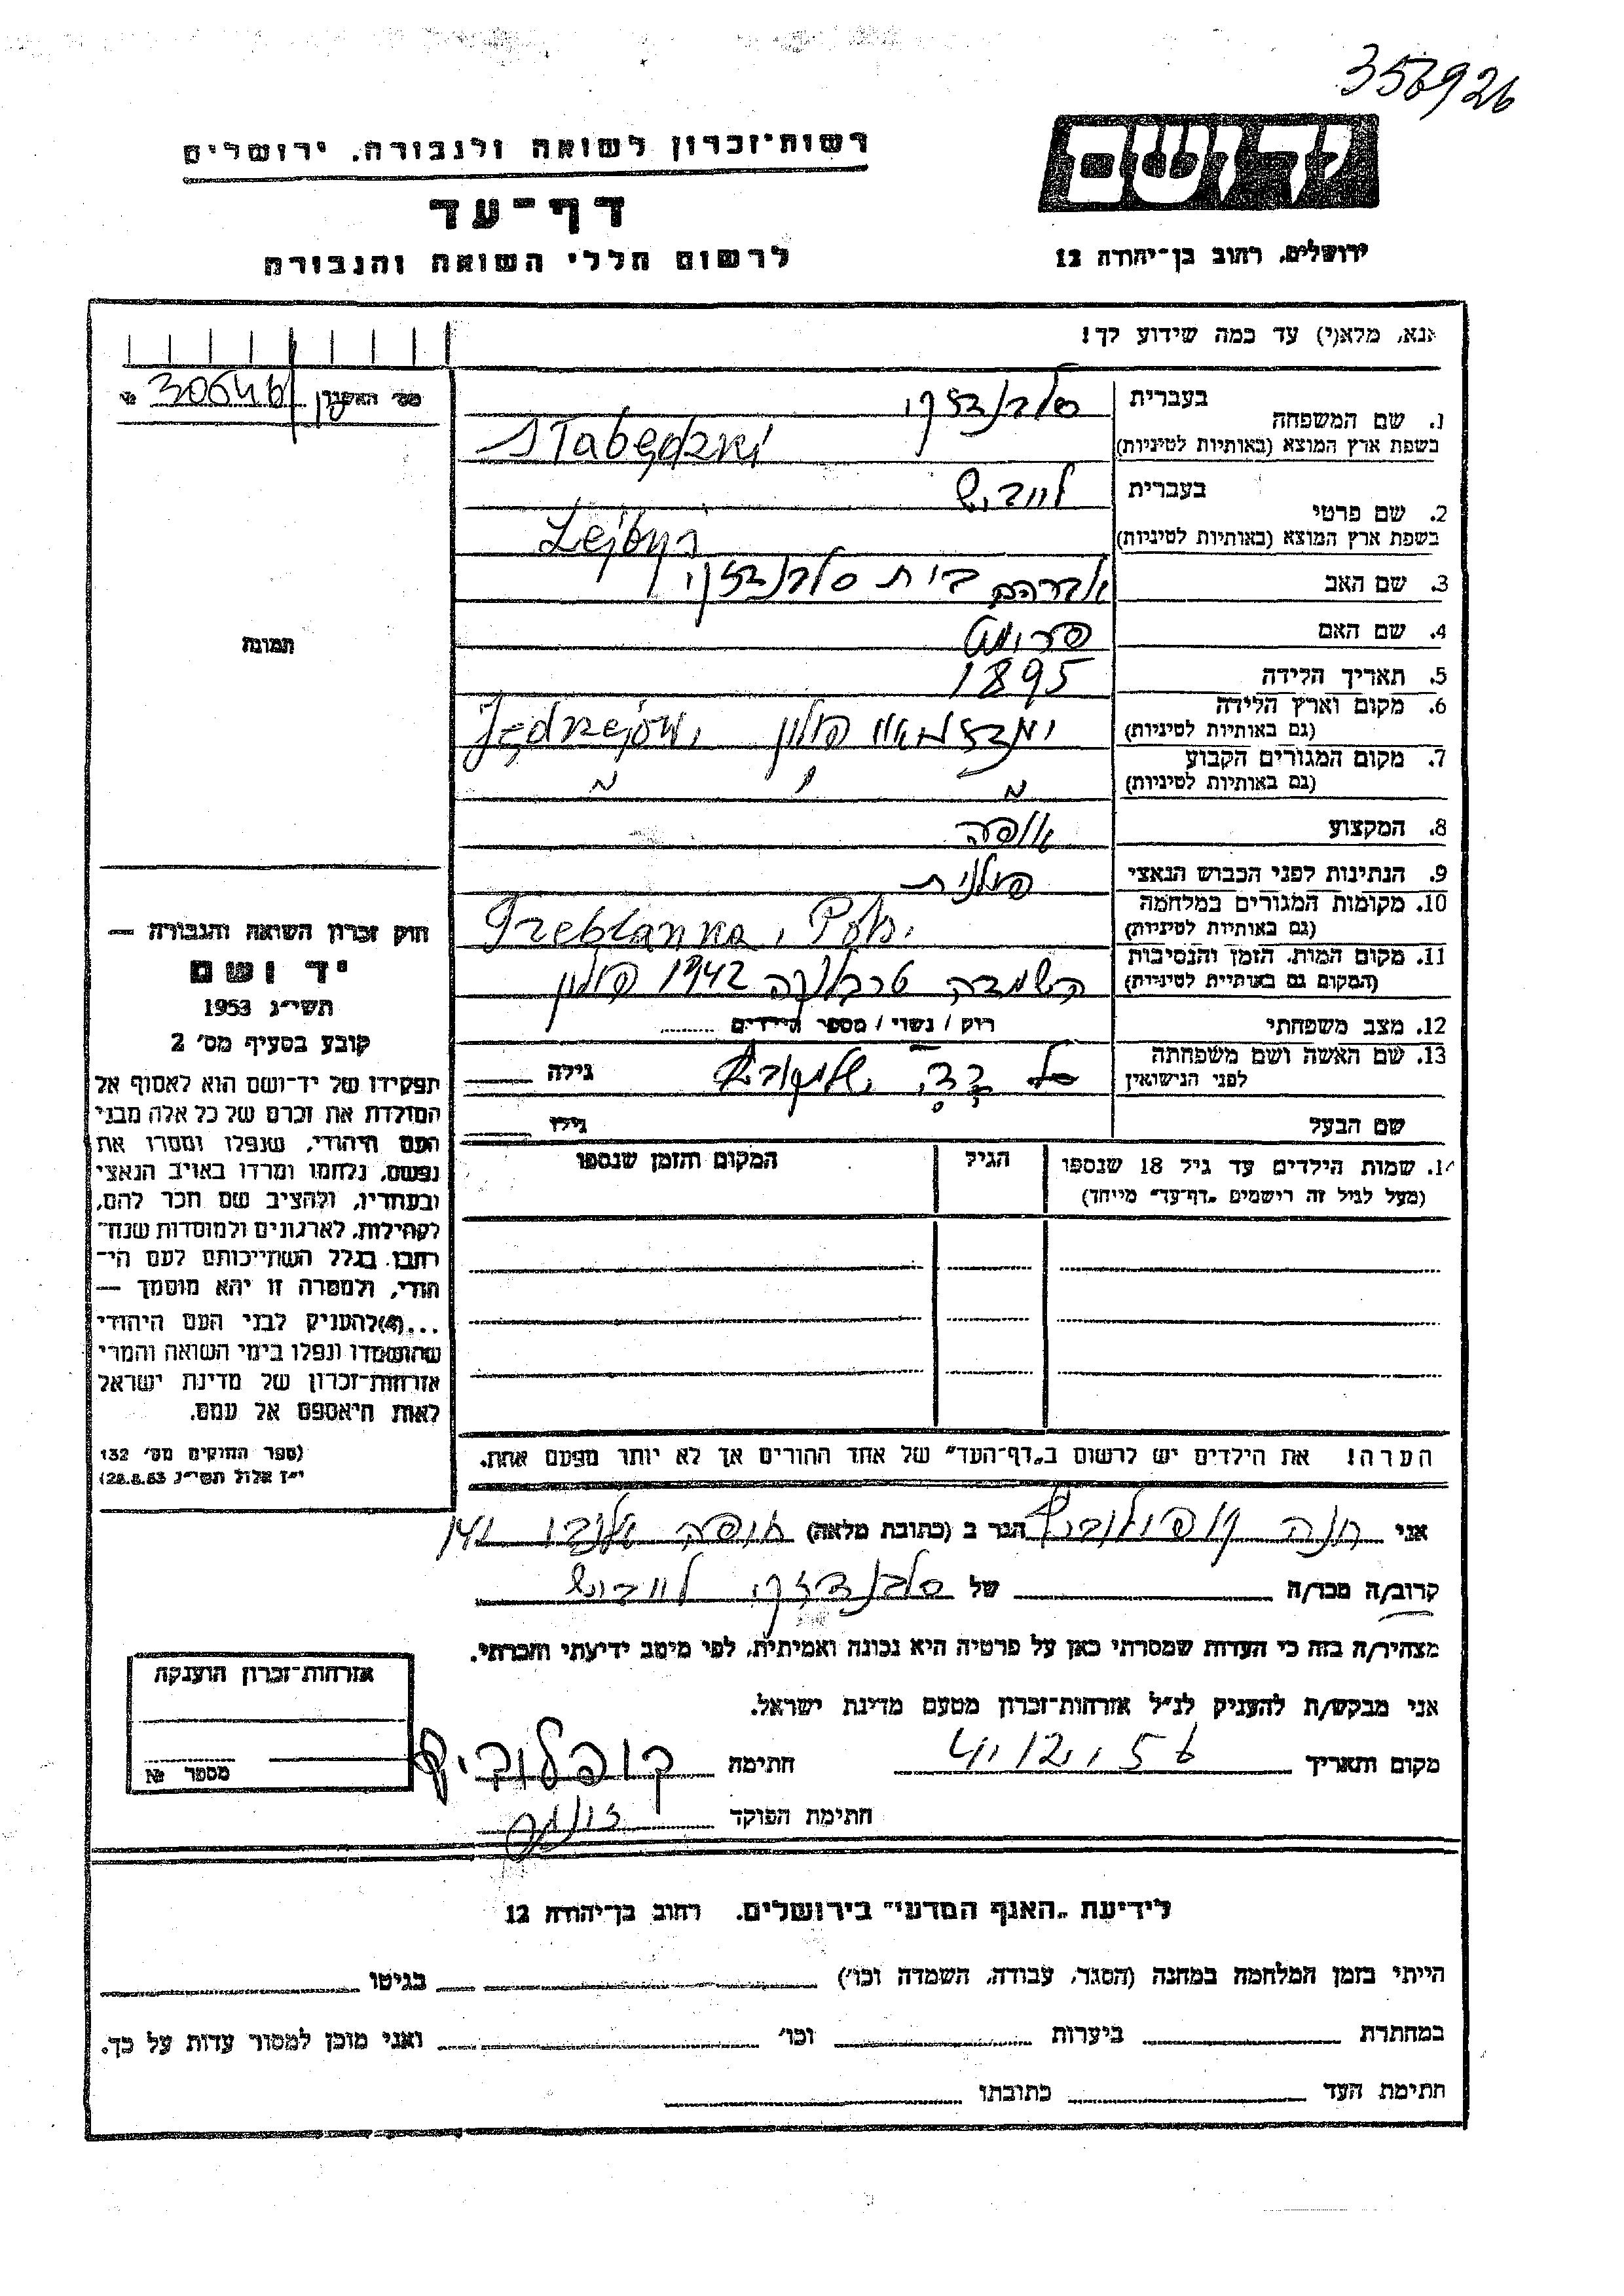 356926
רשות־זכרון לשואה ולגבורה. ירושלים
ידושם
דף־עד
לרשום חללי השואה והגבורה
ירושלים, רחוב בן־יהודה 12
אנא, מלא(י) עד כמה שידוע לך!
מס׳ האשנון № 30646
בעברית
1. שם המשפחה
בשפת ארץ המוצא (באותיות לטיניות) Słabędzki
2. שם פרטי
בעברית לייביש
בשפת ארץ המוצא (באותיות לטיניות) Lejbyś
3. שם האב אברהם
4. שם האם פרומט
5. תאריך הלידה 1895
6. מקום וארץ הלידה פולין Jędrzejów,
(גם באותיות לטיניות)
7. מקום המגורים הקבוע
(גם באותיות לטיניות)
8. המקצוע אופה
9. הנתינות לפני הכבוש הנאצי פולנית
10. מקומות המגורים במלחמה Treblanka, Pol.
(גם באותיות לטיניות)
11. מקום המות. הזמן והנסיבות השמדה טרבלנקה 1942 פולין
(המקום גם באותיות לטיניות)
12. מצב משפחתי רוק / נשוי / מספר הילדים
13. שם האשה ושם משפחתה
לפני הנישואין
גילה
שם הבעל גילו
14. שמות הילדים עד גיל 18 שנספו הגיל המקום והזמן שנספו
(מעל לגיל זה רישמים „דף־עד״ מייחד)
הערה! את הילדים יש לרשום ב„דף־העד״ של אחד ההורים אך לא יותר מפעם אחת.
תמונה
חוק זכרון השואה והגבורה —
יד ושם
תשי״ג 1953
קובע בסעיף מס׳ 2
תפקידו של יד־ושם הוא לאסוף אל
המולדת את זכרם של כל אלה מבני
העם היהודי, שנפלו ומסרו את
נפשם, נלחמו ומרדו באויב הנאצי
ובעוזריו, ולהציב שם וזכר להם,
לקהילות, לארגונים ולמוסדות שנח־
רבו בגלל השתייכותם לעם הי־
הודי, ולמטרה זו יהא מוסמך —
...(4) להעניק לבני העם היהודי
שהושמדו ונפלו בימי השואה והמרי
אזרחות־זכרון של מדינת ישראל
לאות היאספם אל עמם.
(ספר החוקים מס׳ 132
י״ז אלול תשי״ג 28.8.53)
אני חנה קופילוביץ הגר ב (כתובת מלאה) חיפה
קרוב/ה מכר/ה של לייביש
מצהיר/ה בזה כי העדות שמסרתי כאן על פרטיה היא נכונה ואמיתית, לפי מיטב ידיעתי והכרתי.
אני מבקש/ת להעניק לנ״ל אזרחות־זכרון מטעם מדינת ישראל.
מקום ותאריך 4.12.56 חתימה קופלוביץ
חתימת הפוקד
אזרחות־זכרון הוענקה
מספר №
לידיעת „האגף המדעי״ בירושלים. רחוב בן־יהודה 12
הייתי בזמן המלחמה במחנה (הסגר, עבודה, השמדה וכו׳) בגיטו
במחתרת ביערות וכו׳ ואני מוכן למסור עדות על כך.
חתימת העד כתובתו